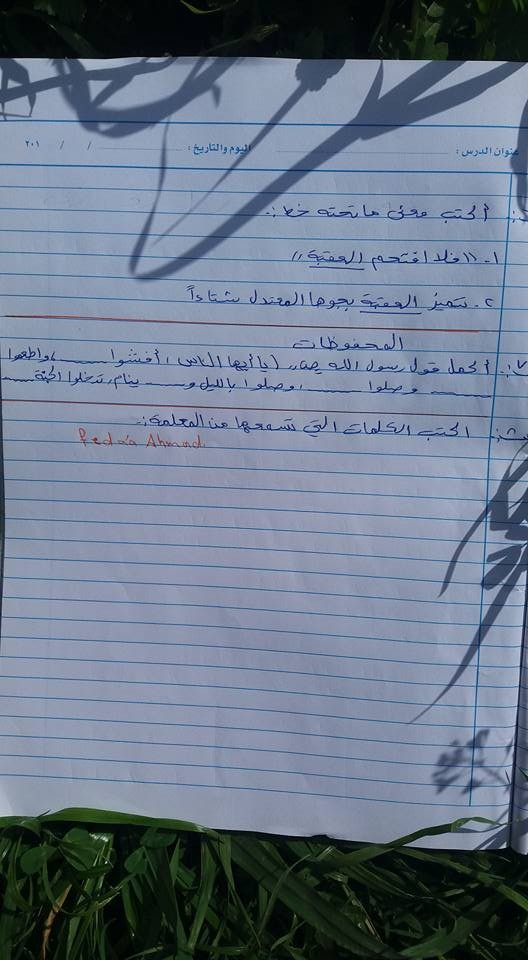 عنوان الدرس : اليوم والتاريخ : / / ٢٠١
أكتب معنى ما تحته خط :.
١- "فلا اقتحم العقبة"
٢- تتميز العقبة بجوها المعتدل شتاءاً
المحفوظات
أكمل قول رسول الله ( يا أيها الناس ، أفشوا ـــــ ، واطعموا
ـــــ وصلوا ـــــ ، وصلوا بالليل و ـــــ ينام ، تدخلوا الجنة ـــــ
اكتب الكلمات التي تسمعها من المعلمة :.
Reda'a Ahmad